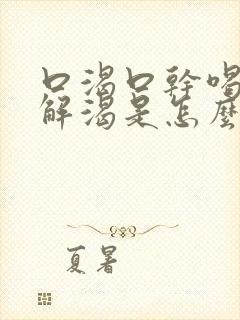 口渴口幹喝
解渴是怎麼
夏暑